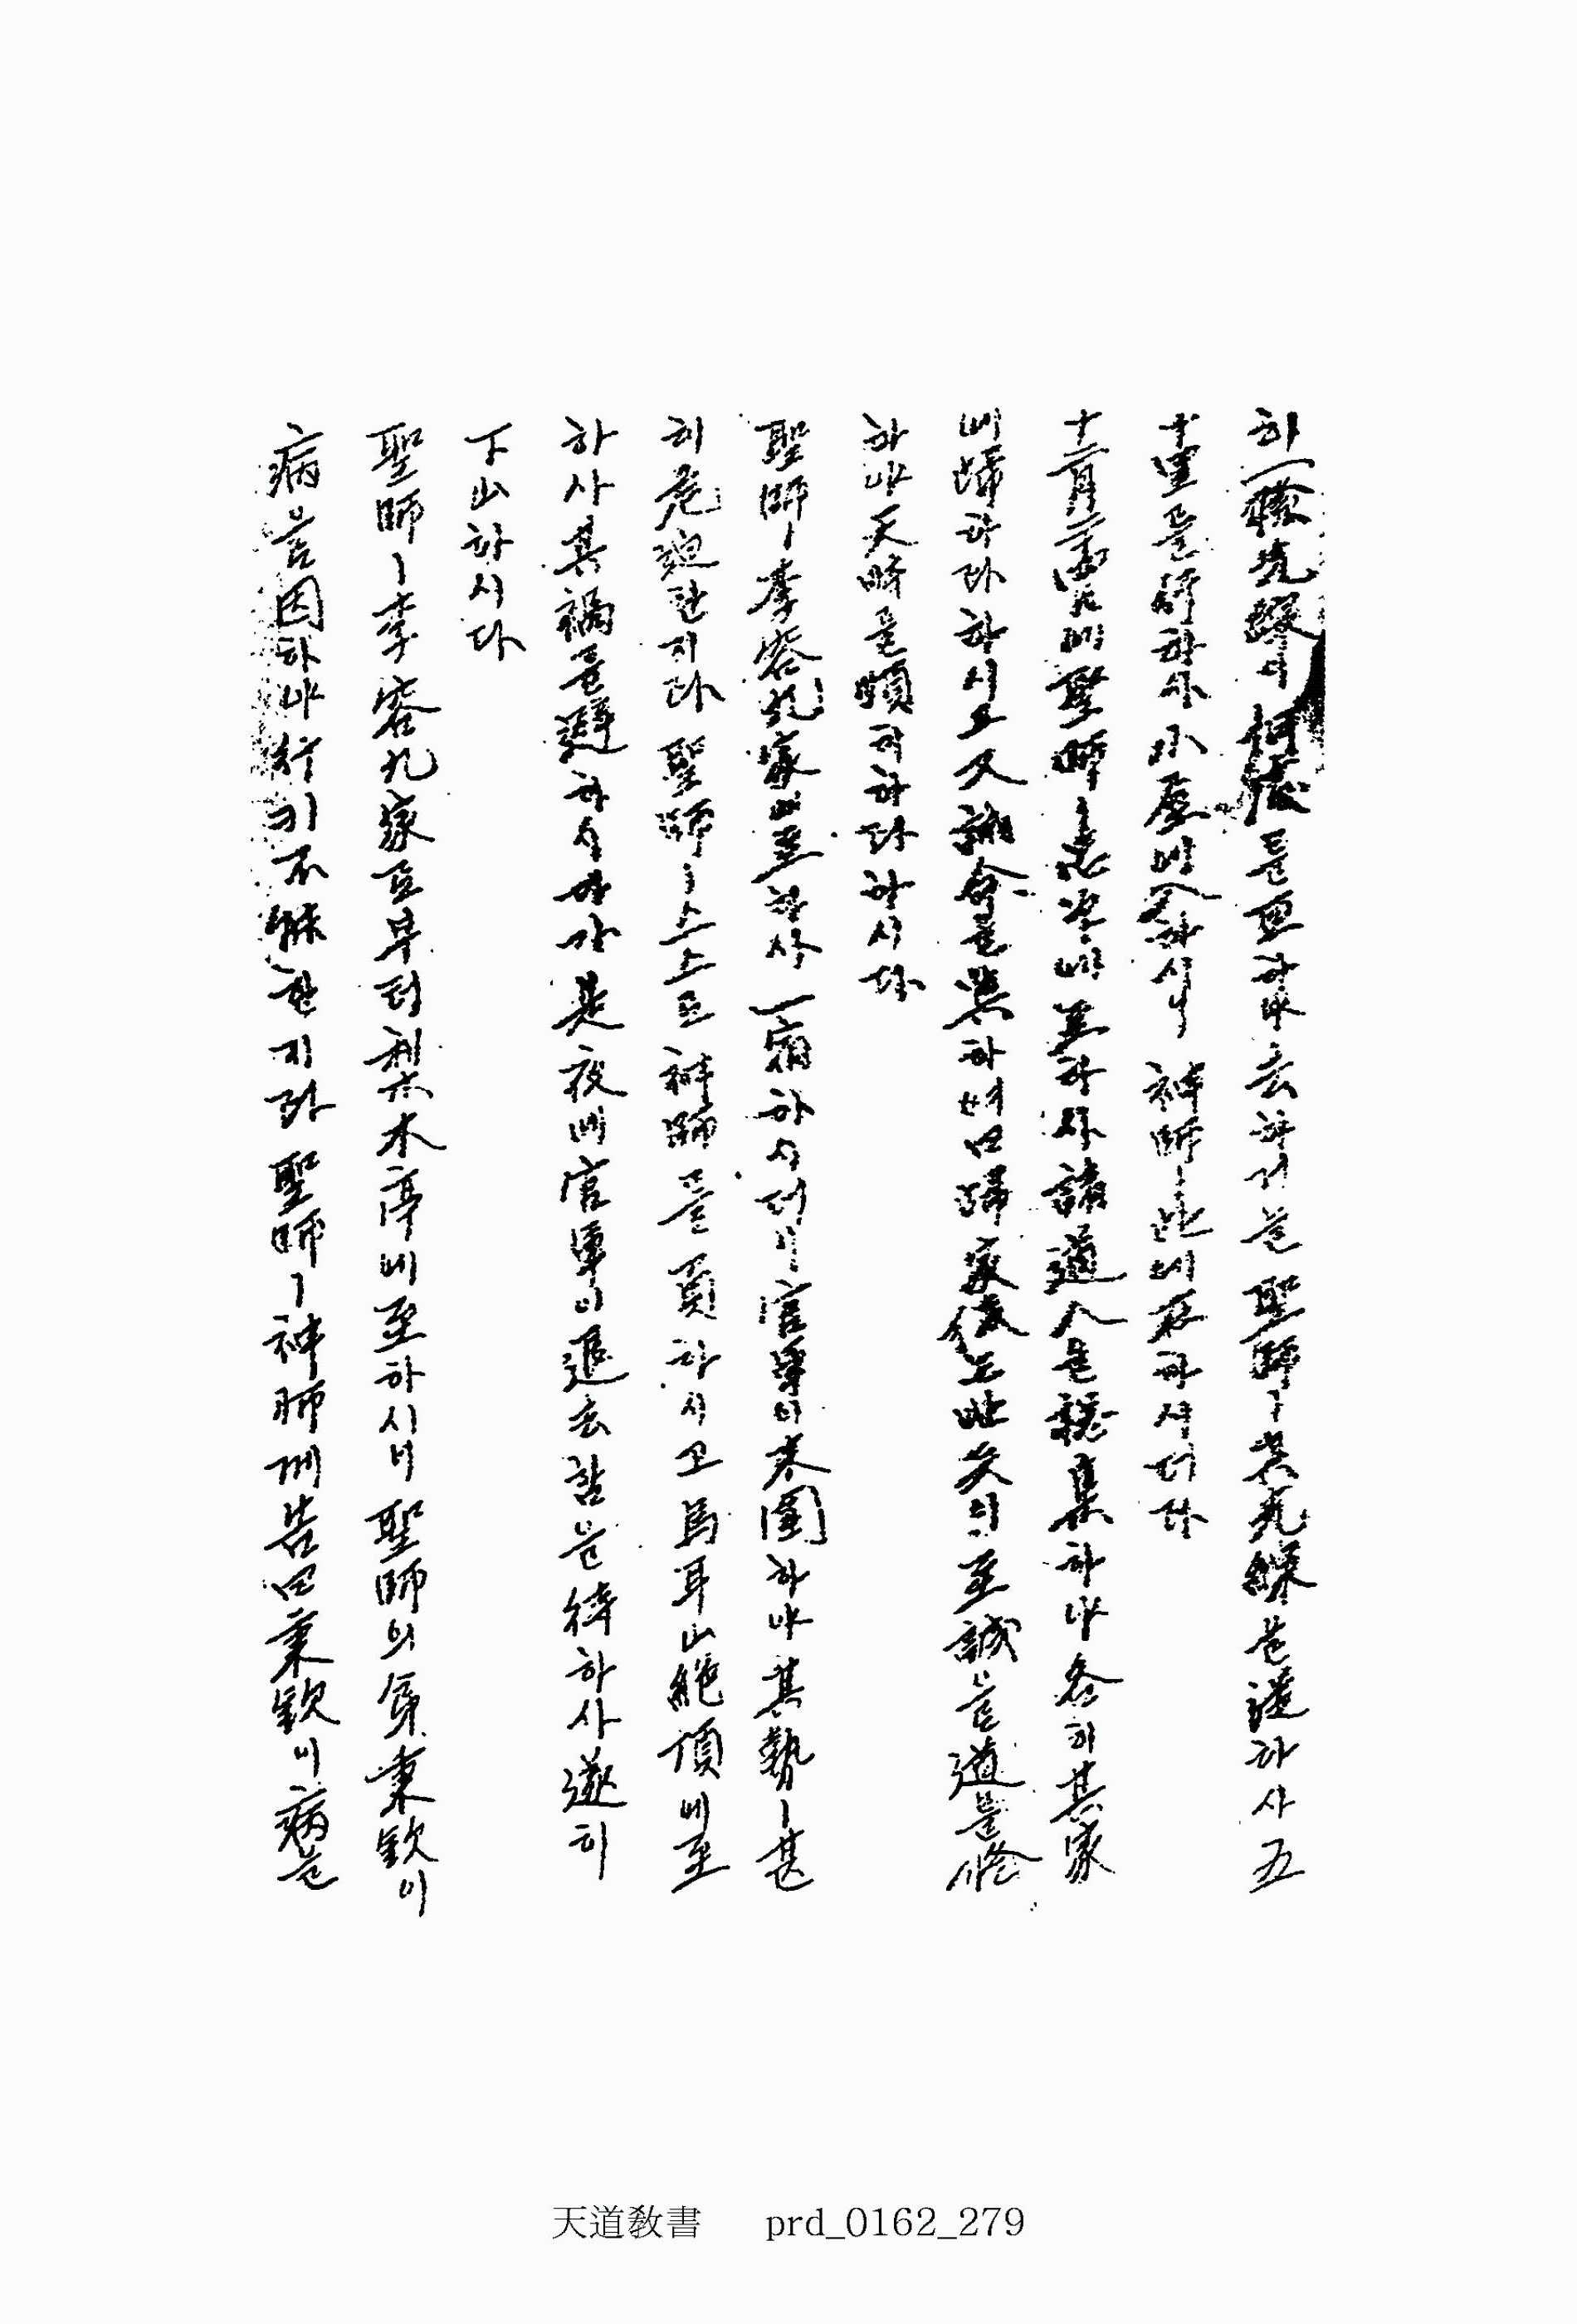 하 를 要하야 去하거늘 聖師ㅣ 其 을 하사 五
十里를 行하사 小屋에 入하시니 神師ㅣ 此에 在하셔더라
十二月 에 聖師ㅣ 忠州에 至하사 諸道人을 聚集하야 各히 其家
에 歸하라 하시고 又 命을 하여 曰 歸家後도 의 至誠으로 道를 修
하야 天時를 順히 하라 하시다
聖師ㅣ 李容九家에 至하사 一宿하시더니 官軍이 來圍하야 其勢ㅣ 甚
히 危迫한지라 聖師ㅣ 스스로 神師를 負하시고 馬耳山 絶頂에 至
하사 其禍를 避하시다가 是夜에 官軍이 退去함을 待하사 遂히
下山하시다
聖師ㅣ 李容九家로부터 梨木亭에 至하시니 聖師의 弟秉欽이
病을 因하야 行키 不能한지라 聖師ㅣ 神師께 告曰 秉欽이 病을
天道敎書 prd_0162_279